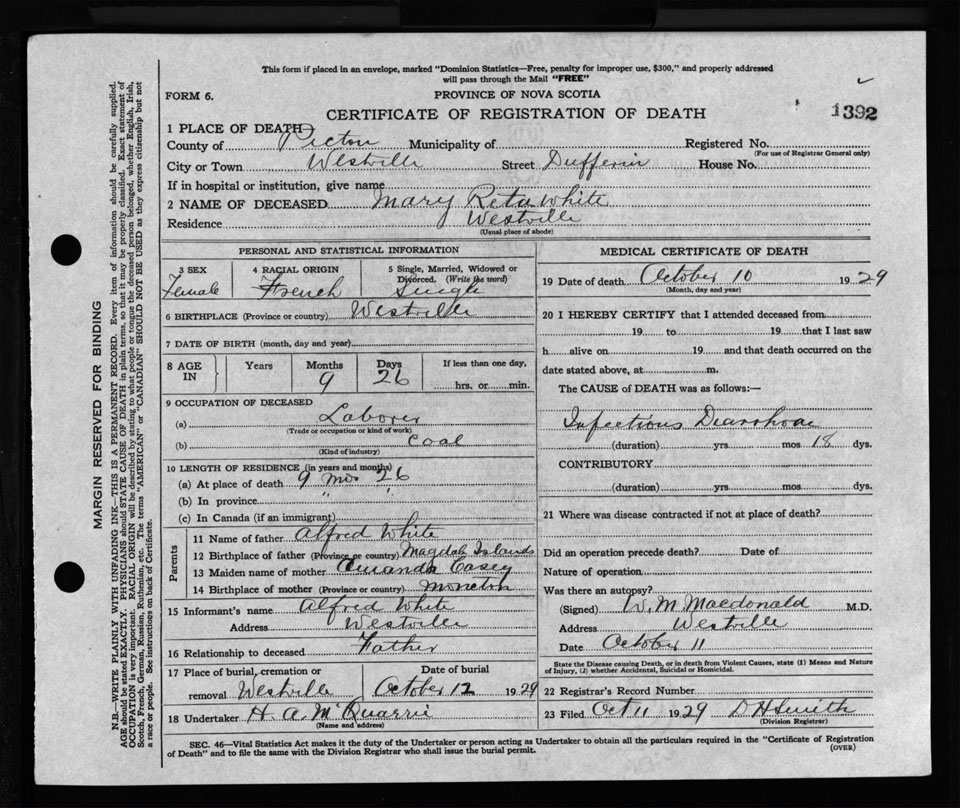 This form if placed in an envelope, marked "Dominion Statistics—Free, penalty for improper use, $300," and properly addressed
will pass through the Mail "FREE"
FORM 6.
PROVINCE OF NOVA SCOTIA
CERTIFICATE OF REGISTRATION OF DEATH
1392
1 PLACE OF DEATH
County of Pictou Municipality of Registered No.
(For use of Registrar General only)
City or Town Westville Street Dufferin House No.
If in hospital or institution, give name
2 NAME OF DECEASED Mary Reta White
Residence Westville
(Usual place of abode)
PERSONAL AND STATISTICAL INFORMATION
3 SEX Female
4 RACIAL ORIGIN French
5 Single, Married, Widowed or Divorced. (Write the word) Single
6 BIRTHPLACE (Province or country) Westville
7 DATE OF BIRTH (month, day and year)
8 AGE IN Years Months 9 Days 26 If less than one day, hrs. or min.
9 OCCUPATION OF DECEASED
(a) Laborer
(Trade or occupation or kind of work)
(b) Coal
(Kind of industry)
10 LENGTH OF RESIDENCE (in years and months)
(a) At place of death 9 mos 26
(b) In province " "
(c) In Canada (if an immigrant)
Parents
11 Name of father Alfred White
12 Birthplace of father (Province or country) Magdah Islands
13 Maiden name of mother Amanda Casey
14 Birthplace of mother (Province or country) Moncton
15 Informant's name Alfred White
Address Westville
16 Relationship to deceased Father
17 Place of burial, cremation or removal Westville
Date of burial October 12 1929
18 Undertaker H. A. McQuarrie
(Name and address)
MEDICAL CERTIFICATE OF DEATH
19 Date of death October 10 1929
(Month, day and year)
20 I HEREBY CERTIFY that I attended deceased from
19 to 19 that I last saw
h alive on 19 and that death occurred on the
date stated above, at m.
The CAUSE of DEATH was as follows:—
Infectious Diarrhoae
(duration) yrs mos 18 dys.
CONTRIBUTORY
(duration) yrs mos dys.
21 Where was disease contracted if not at place of death?
Did an operation precede death? Date of
Nature of operation
Was there an autopsy?
(Signed) W. M. Macdonald M.D.
Address Westville
Date October 11
State the Disease causing Death, or in death from Violent Causes, state (1) Means and Nature
of Injury, (2) whether Accidental, Suicidal or Homicidal.
22 Registrar's Record Number
23 Filed Oct 11 1929 D H Smith
(Division Registrar)
SEC. 46—Vital Statistics Act makes it the duty of the Undertaker or person acting as Undertaker to obtain all the particulars required in the "Certificate of Registration
of Death" and to file the same with the Division Registrar who shall issue the burial permit.
(OVER)
MARGIN RESERVED FOR BINDING
N.B.—WRITE PLAINLY WITH UNFADING INK—THIS IS A PERMANENT RECORD. Every item of information should be carefully supplied.
AGE should be stated EXACTLY. PHYSICIANS should STATE CAUSE OF DEATH in plain terms, so that it may be properly classified. Exact statement of
OCCUPATION is very important. RACIAL ORIGIN will be described by stating to what people or tongue the deceased person belonged, whether English, Irish,
Scotch, French, German, Russian, Ruthenian, etc. The terms "AMERICAN" or "CANADIAN" SHOULD NOT BE USED as they express citizenship but not
a race or people. See instructions on back of Certificate.